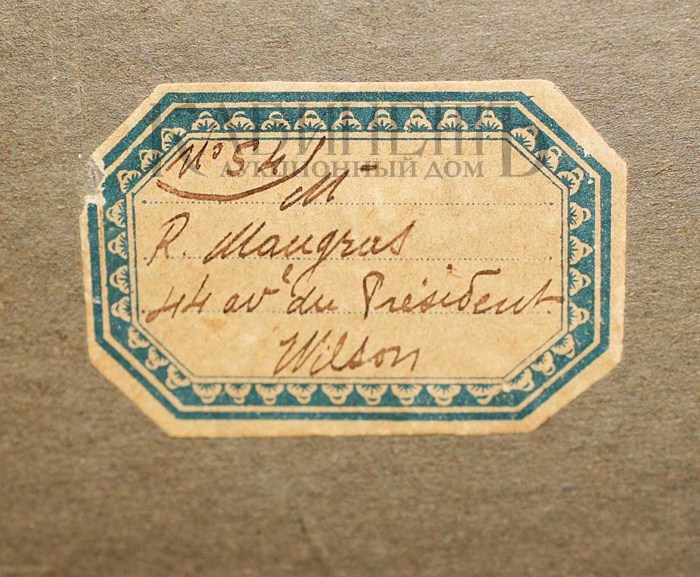 КАБИНЕТЪ
АУКЦИОННЫЙ ДОМ
No 54
M
R. Maugras
44 av^e du Président
Wilson